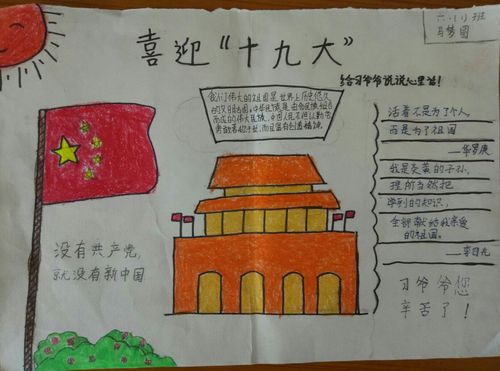 六.(1)班
马梦园
喜迎“十九大”
给习爷爷说说心里话!
我们伟大的祖国是世界上历史悠久
的文明古国。中华民族是由各民族组合
而成的伟大民族,中国人民不但以勤劳
勇敢著称于世,而且富有创造精神。
活着不是为了个人,
而是为了祖国
——华罗庚
我是炎黄的子孙,
理所当然把
学到的知识,
全部献给我亲爱
的祖国。
——李四光
没有共产党,
就没有新中国
习爷爷您
辛苦了!